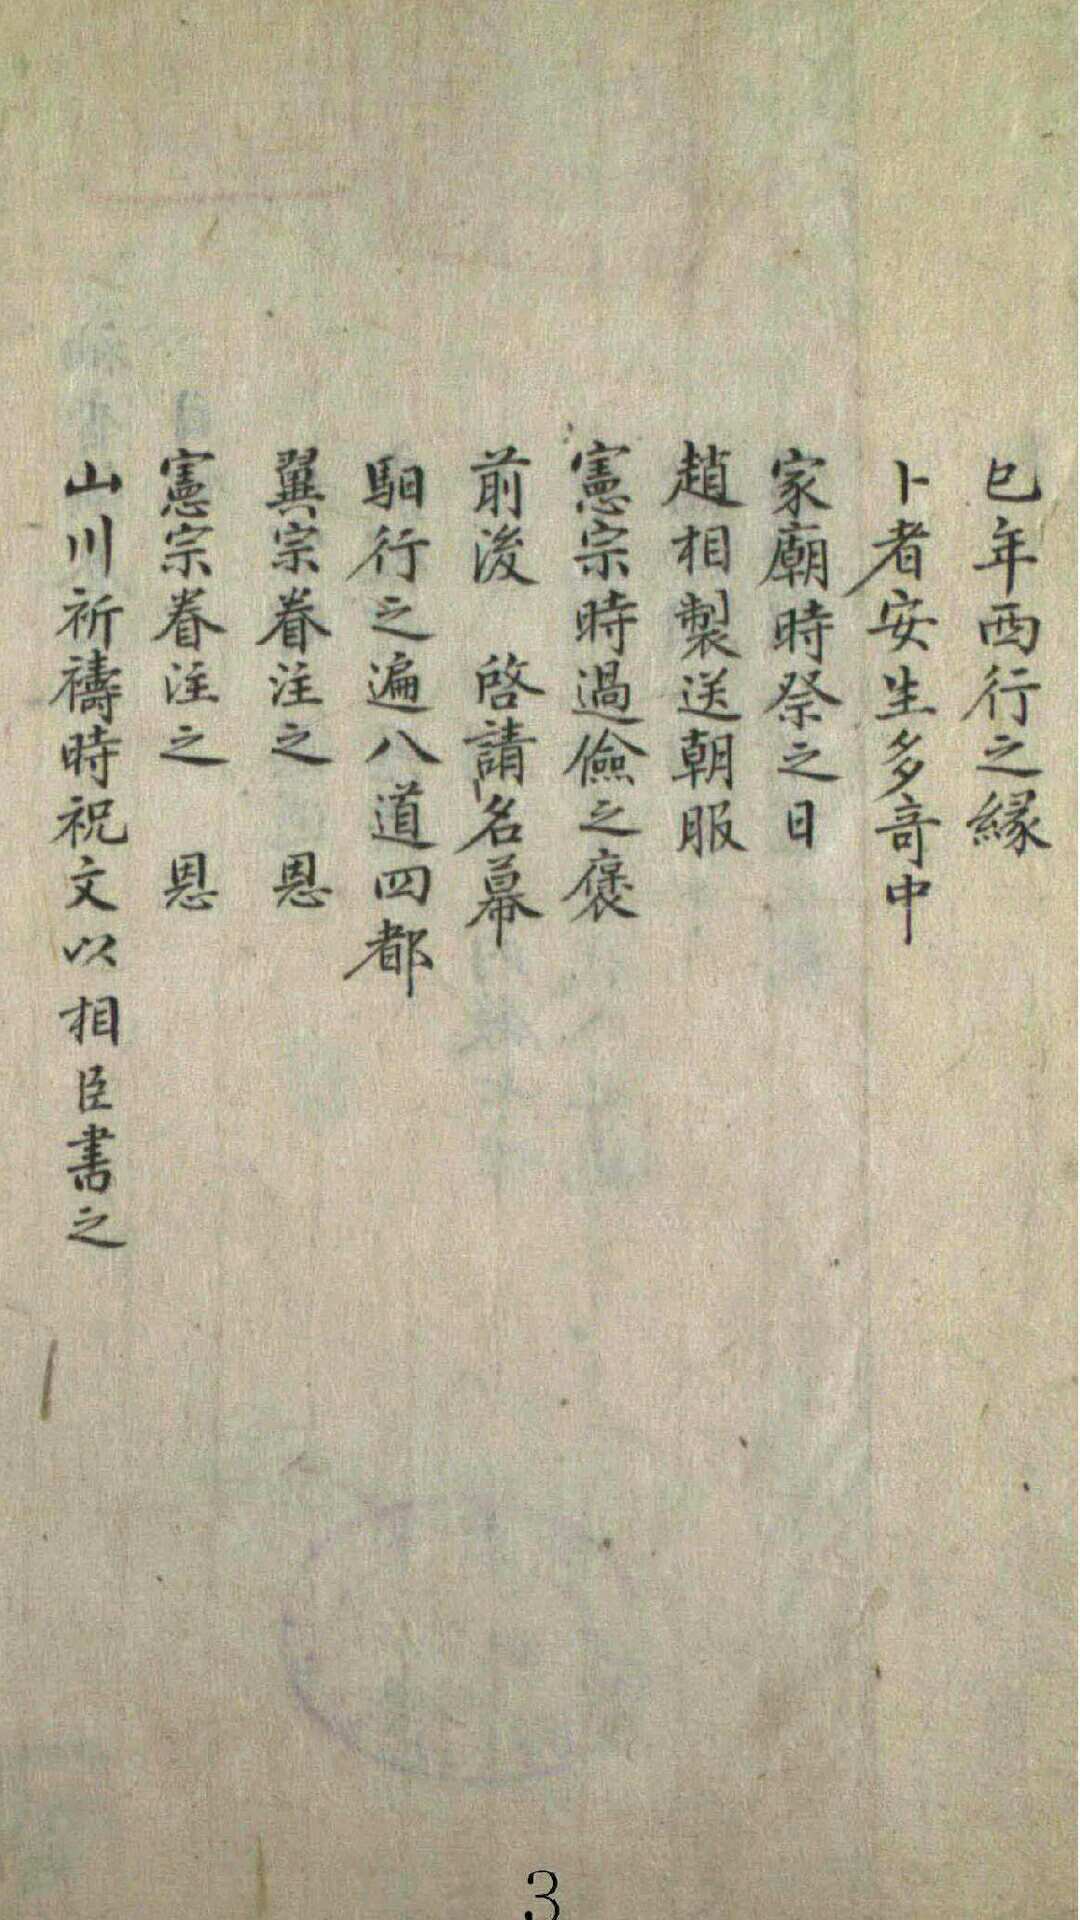 巳年西行之緣
卜者安生多奇中
家廟時祭之日
趙相製送朝服
憲宗時過儉之褒
前後　啓請名幕
駟行之遍八道四都
翼宗眷注之　恩
憲宗眷注之　恩
山川祈禱時祝文以相臣書之
3